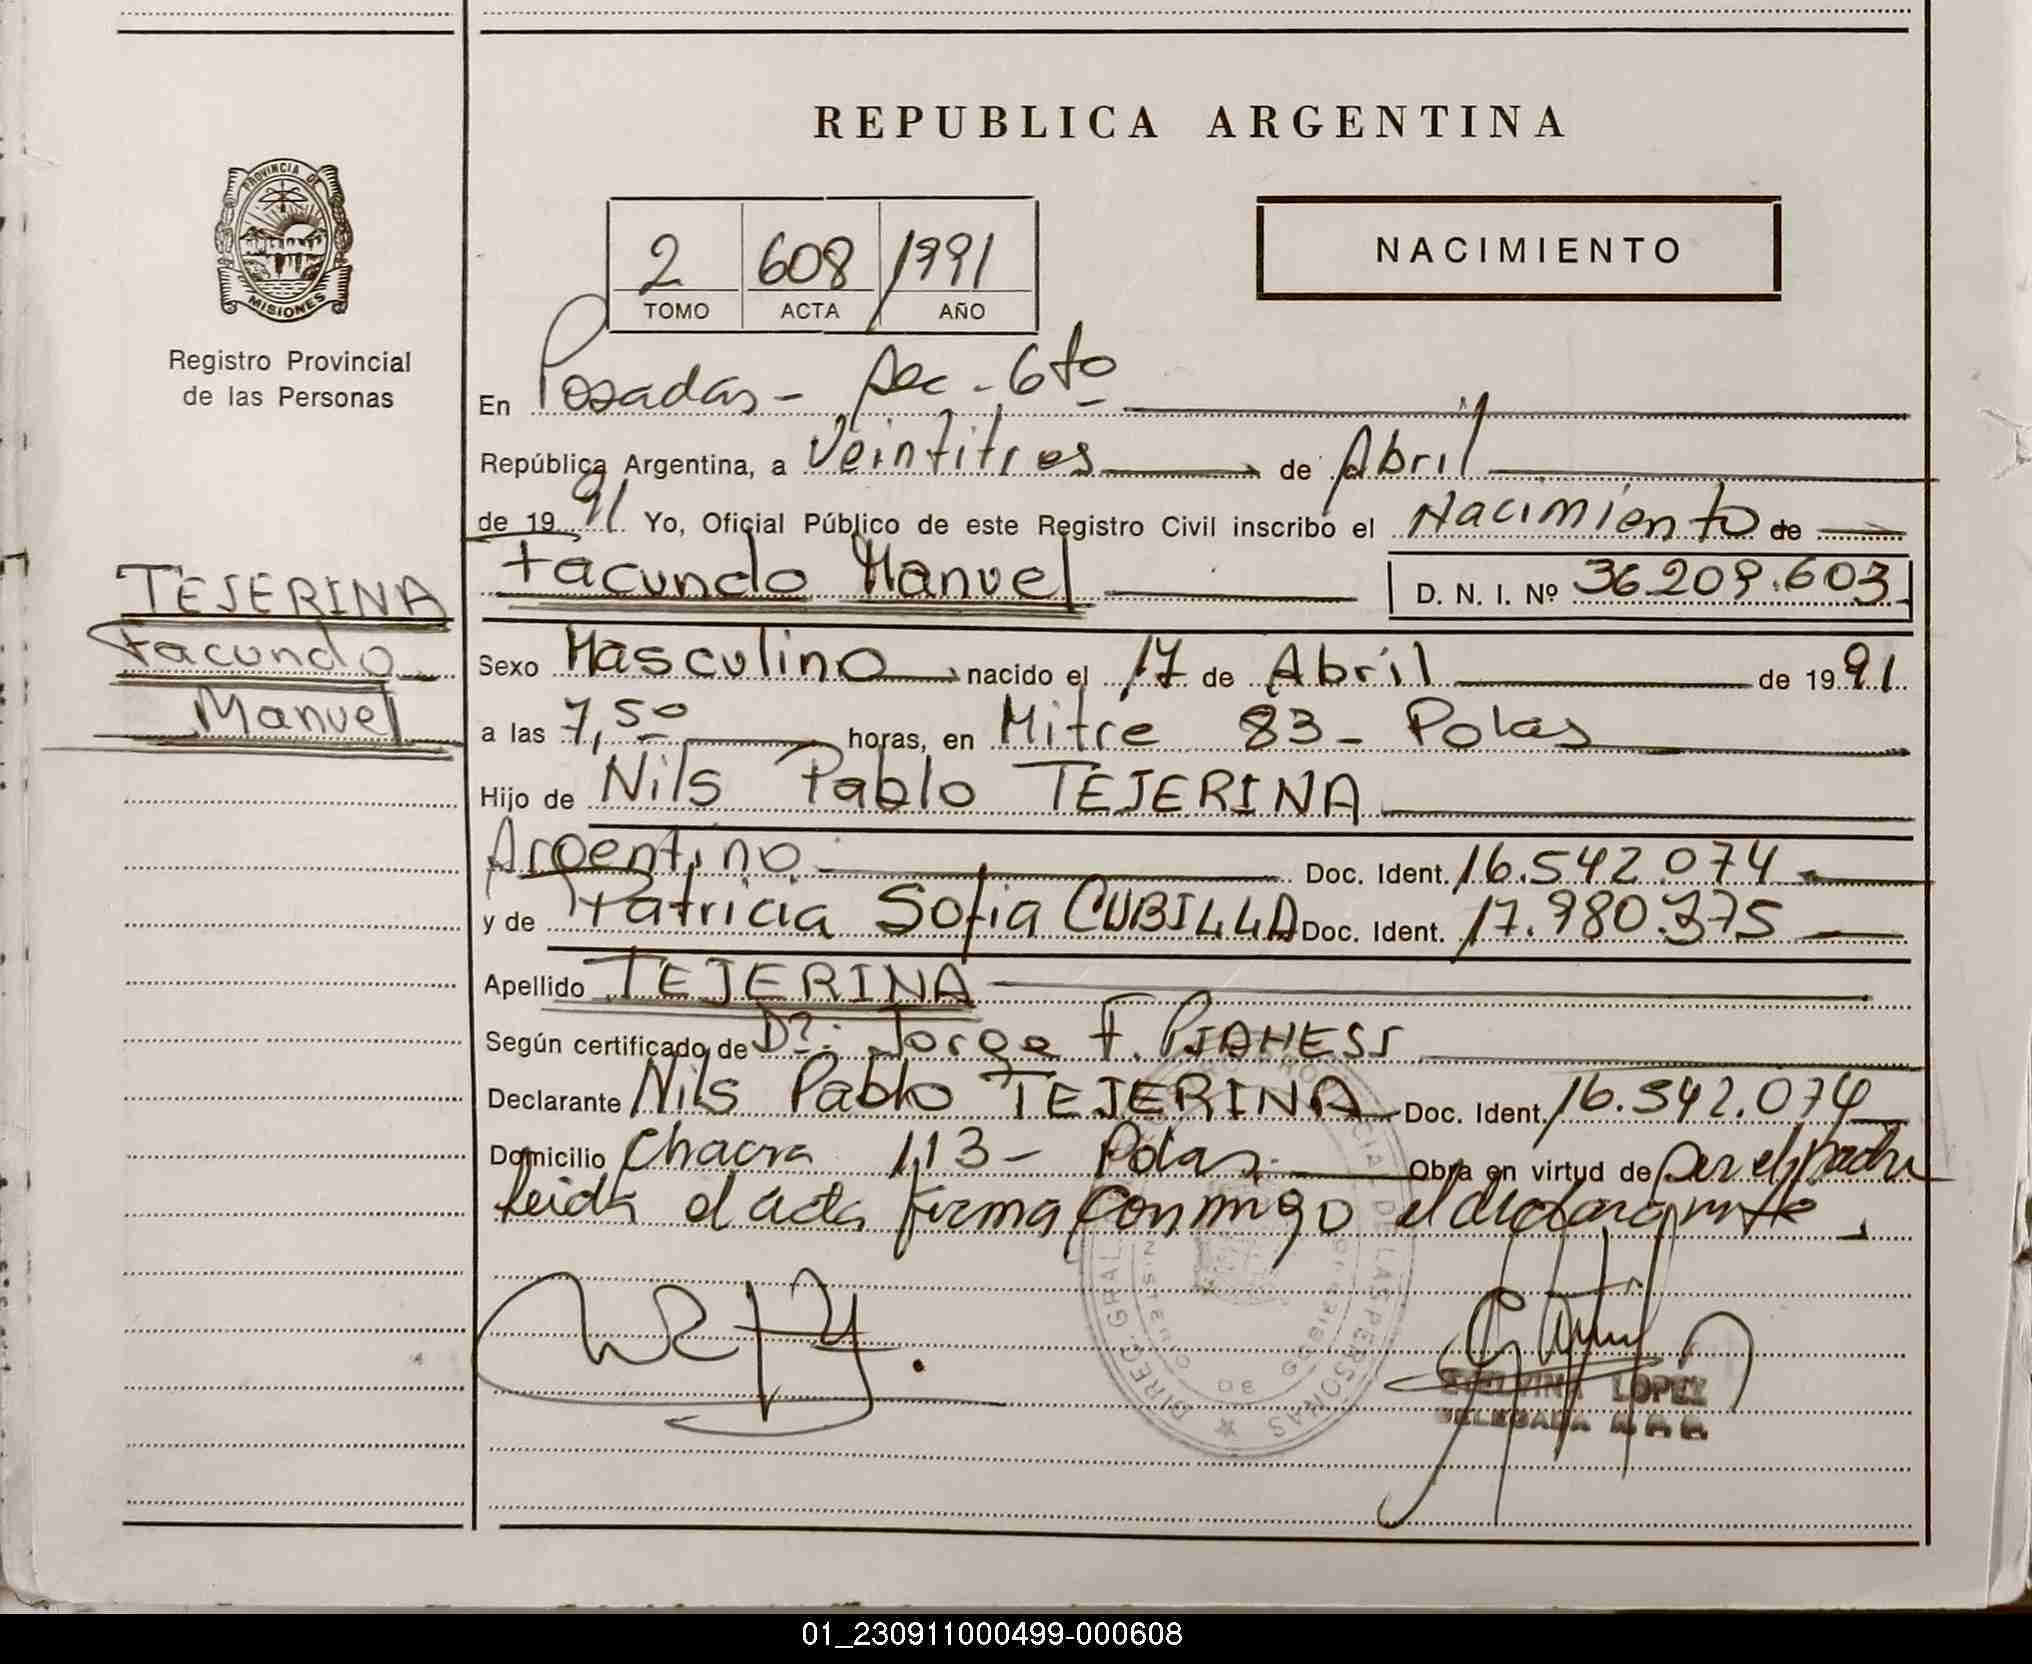 REPUBLICA ARGENTINA
PROVINCIA DE
MISIONES
Registro Provincial
de las Personas
2 608 1991
TOMO ACTA AÑO
NACIMIENTO
En Posadas - Sec - 6to
República Argentina, a Veintitres de Abril
de 1991 Yo, Oficial Público de este Registro Civil inscribo el Nacimiento de
Facundo Manuel D. N. I. Nº 36.209.603
TEJERINA
Facundo
Manuel
Sexo Masculino nacido el 17 de Abril de 1991
a las 7,50 horas, en Mitre 83 - Pdas
Hijo de Nils Pablo TEJERINA
Argentino Doc. Ident. 16.542.074
y de Patricia Sofia CUBILLA Doc. Ident. 17.980.375
Apellido TEJERINA
Según certificado de Dr. Jorge F.
Declarante Nils Pablo TEJERINA Doc. Ident. 16.542.074
Domicilio Chacra 113 - Pdas. Obra en virtud de ser el padre
leida el acta firma conmigo el declarante.
DIREC. GRAL. DE LAS PERSONAS
LOPEZ
DELEGADA
01_230911000499-000608